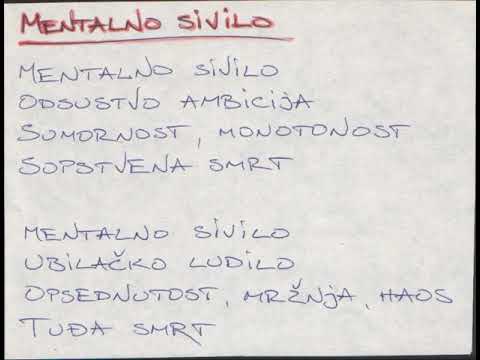 MENTALNO SIVILO
MENTALNO SIVILO
ODSUSTVO AMBICIJA
SUMORNOST, MONOTONOST
SOPSTVENA SMRT
MENTALNO SIVILO
UBILAČKO LUDILO
OPSEDNUTOST, MRŽNJA, HAOS
TUĐA SMRT